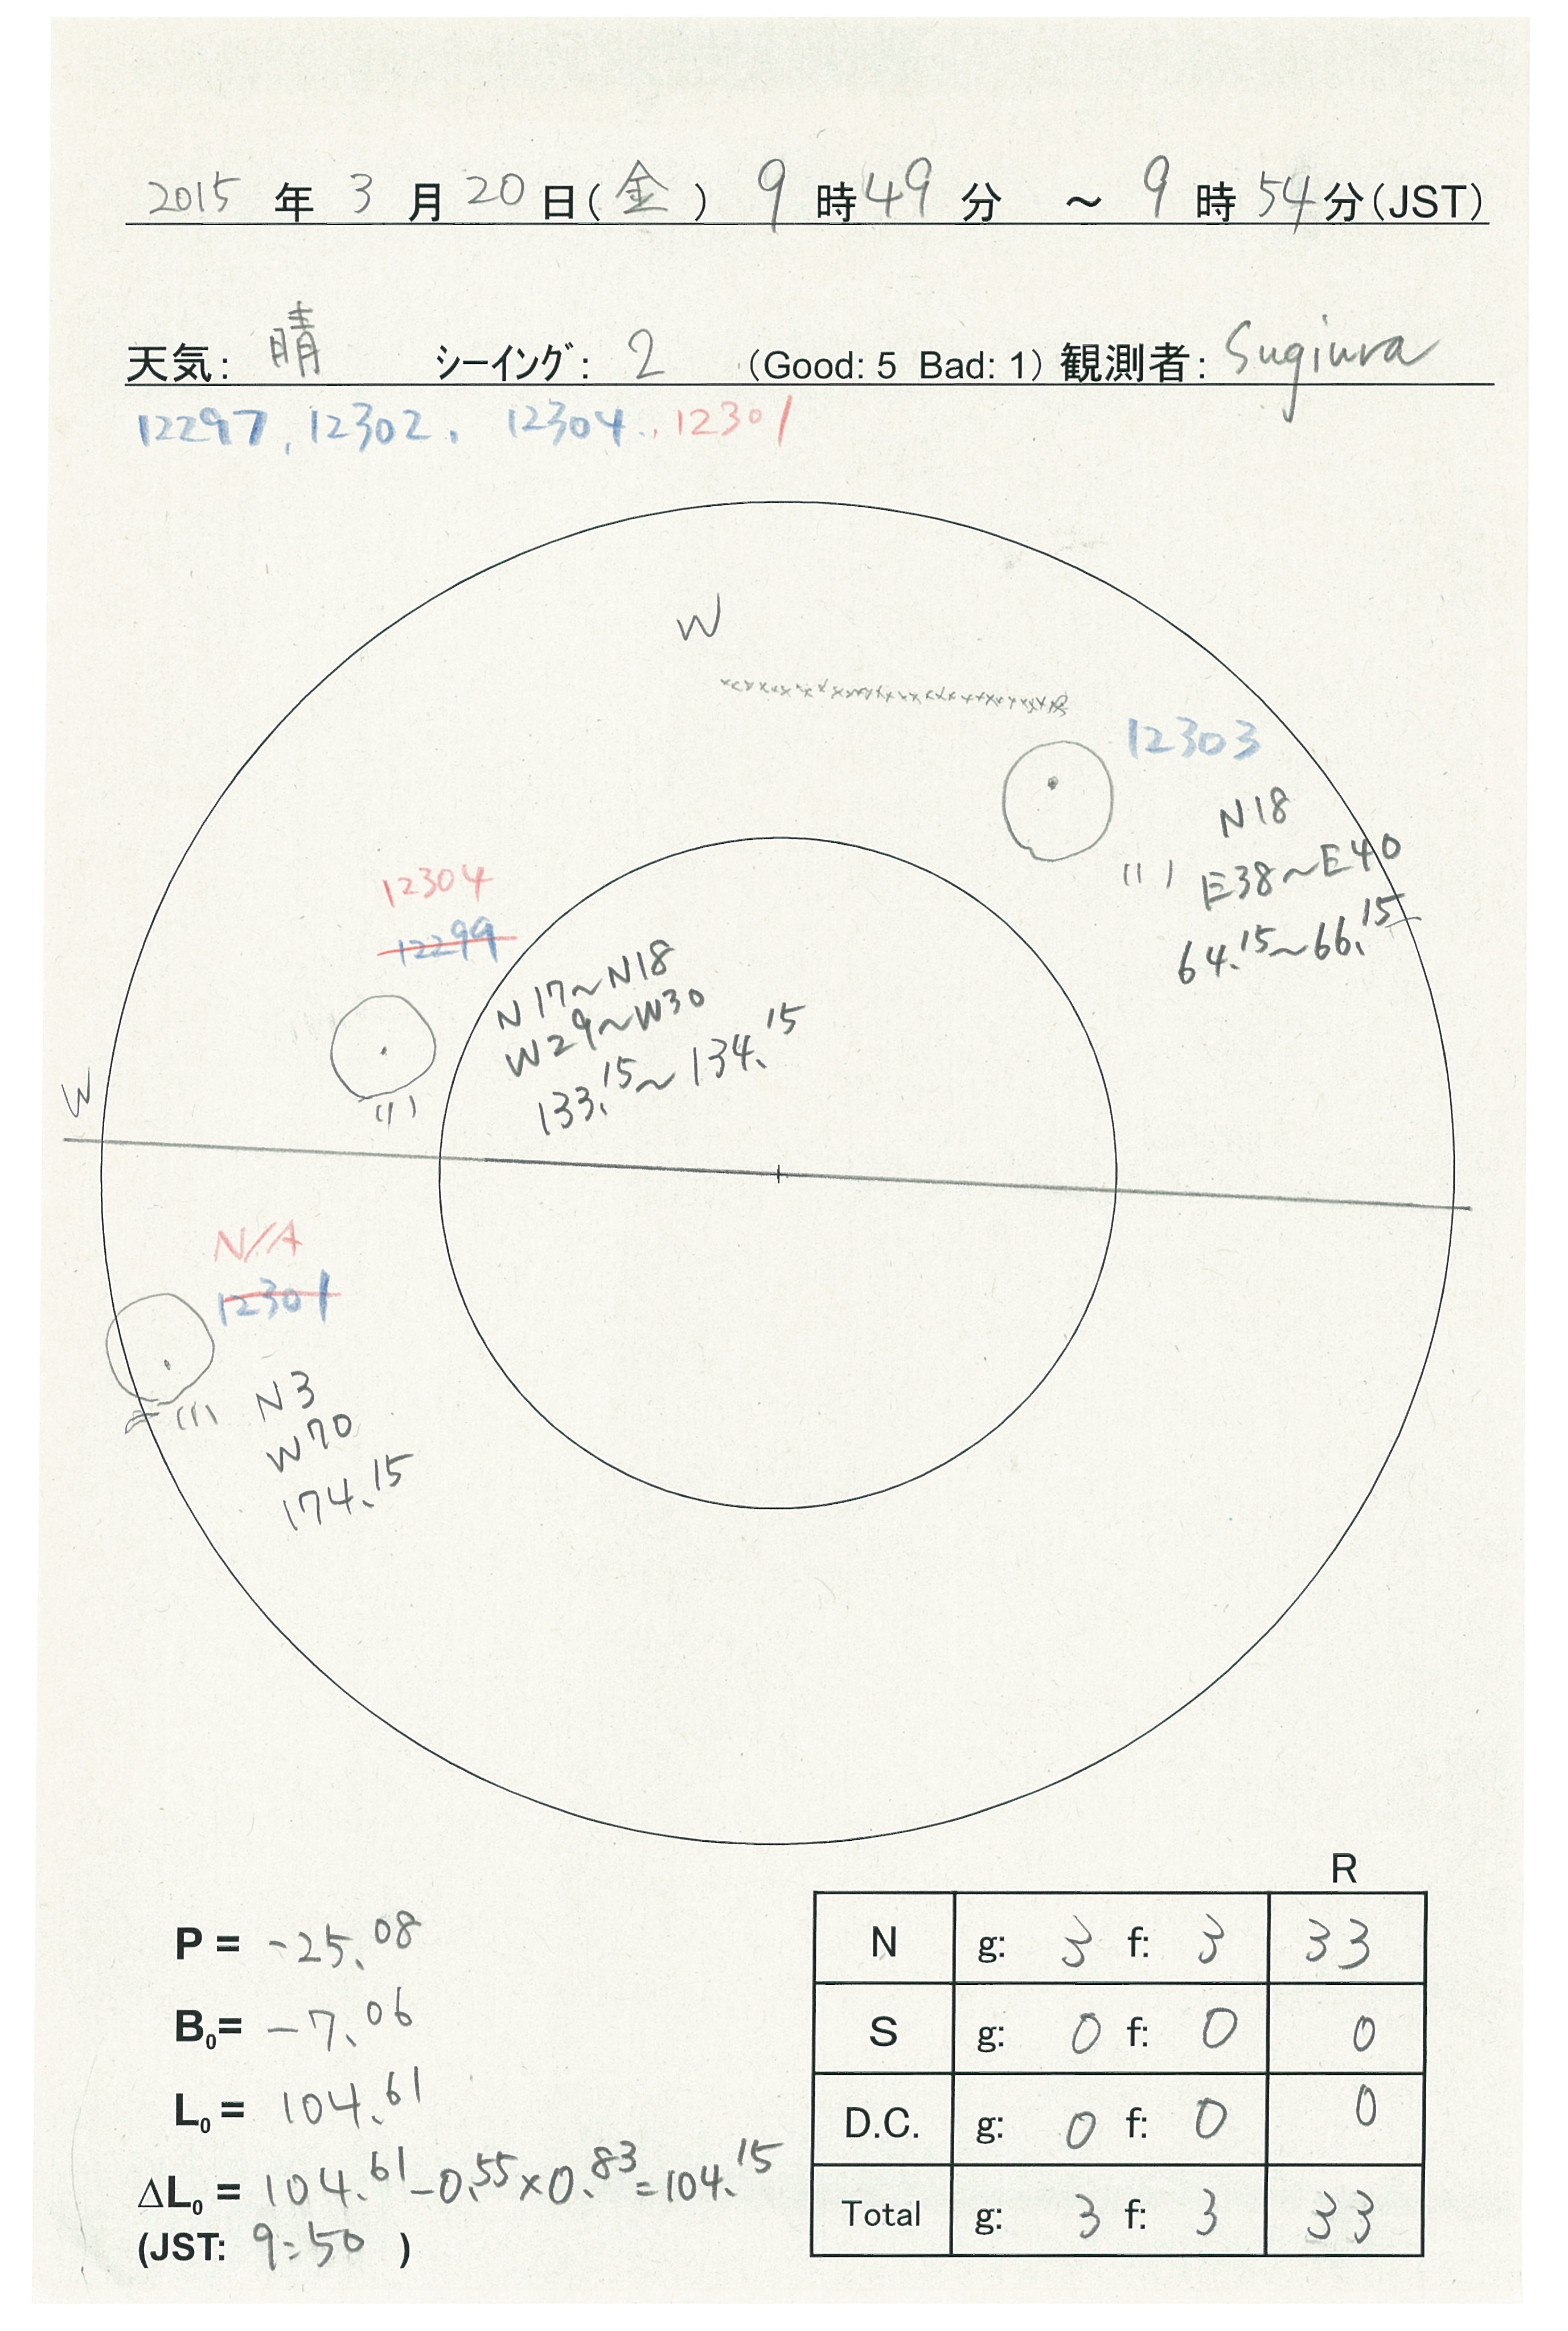 2015 年 3 月 20 日(金) 9 時 49 分 ～ 9 時 54 分(JST)
天気: 晴 シーイング: 2 (Good: 5 Bad: 1) 観測者: Sugiura
12297, 12302, 12304, 12301
W
12303
N18
(1) E38~E40
64.15~66.15
12304
12299
N17~N18
W29~W30
133.15~134.15
(1)
W
N/A
12301
(1) N3
W70
174.15
R
P = -25.08
B0= -7.06
L0 = 104.61
ΔL0 = 104.61-0.55×0.83=104.15
(JST: 9:50 )
N g: 3 f: 3 33
S g: 0 f: 0 0
D.C. g: 0 f: 0 0
Total g: 3 f: 3 33